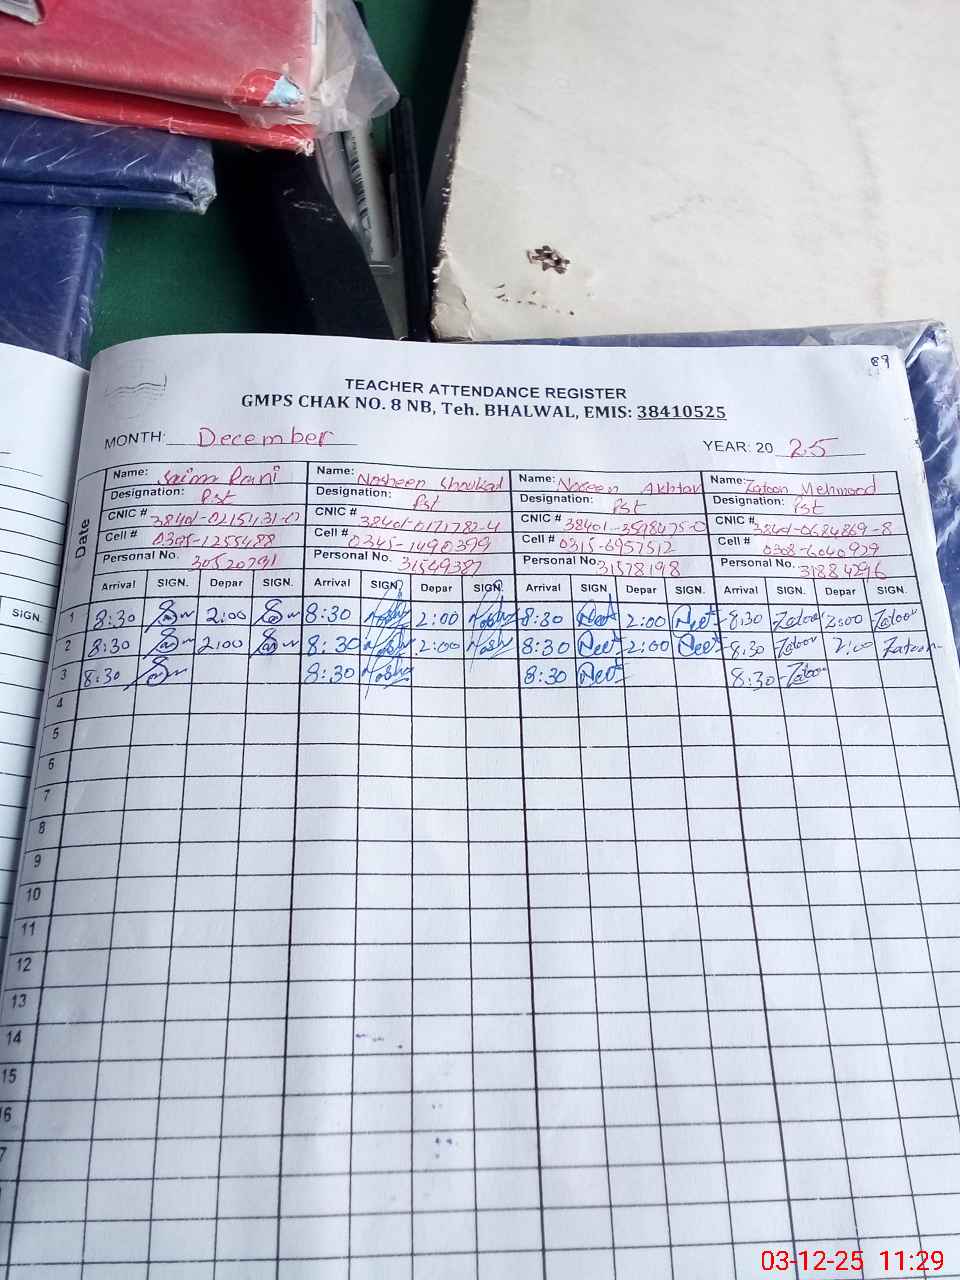 89
TEACHER ATTENDANCE REGISTER
GMPS CHAK NO. 8 NB, Teh. BHALWAL, EMIS: 38410525
MONTH: December YEAR: 2025
Name: Saima Rani Name: Nosheen Shoukat Name: Noreen Akhtar Name: Zatoon Mehmood
Designation: Pst Designation: Pst Designation: Pst Designation: Pst
CNIC # 38401-0215431-0 CNIC # 38401-0171782-4 CNIC # 38401-3598475-0 CNIC # 38401-0684869-8
Cell # 0345-1490399 Cell # 0315-6957512 Cell # 0308-6040979
Personal No. 30520791 Personal No. 31549387 Personal No. 31578198 Personal No. 31884296
Date Arrival SIGN. Depar SIGN. Arrival SIGN. Depar SIGN. Arrival SIGN Depar SIGN. Arrival SIGN. Depar SIGN.
SIGN
1 8:30 2:00 8:30 2:00 8:30 2:00 8:30 Zatoon 2:00 Zatoon
2 8:30 2:00 8:30 2:00 8:30 2:00 8:30 Zatoon 2:00 Zatoon
3 8:30 8:30 8:30 8:30 Zatoon
4
5
6
7
8
9
10
11
12
13
14
15
16
7
03-12-25 11:29